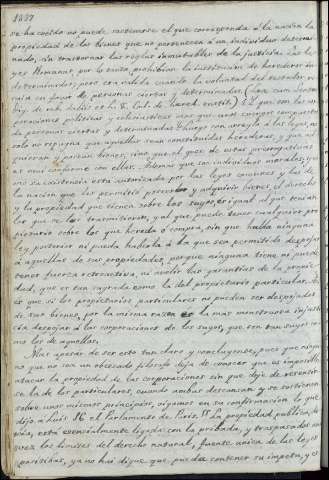 1837
se ha escrito no puede sostenerse el que corresponda á la nacion la
propiedad de los bienes que no pertenecen á un individuo determi-
nado, sin trastornar las reglas inmutables de la justicia. Las le-
yes Romanas por lo mismo prohibian la institucion de herederos in-
determinados; pero era valida cuando la voluntad del testador re-
caia en favor de personas ciertas y determinadas
que con las
corporaciones politicas y eclesiasticas sino que unos cuerpos compuestos
de personas ciertas y determinadas? Luego con arreglo á las leyes no
solo no repugna que aquellas sean constituidas herederas, y que ad-
quieran y posean bienes, sino que el goce de estas prerogativas
es muy conforme con ellas. Ademas que son individuos morales, que
su existencia está autorizada por las leyes comunes y las de
la nacion que les permitió poseer y adquirir bienes, el derecho
y la propiedad que tienen sobre los suyos, es igual al que tenian
los que se los trasmitieron, y al que puede tener cualquier pro-
pietario sobre los que heredó ó compra, sin que haya ninguna
ley posterior ni pueda haberla á la que sea permitido despojar
á aquellas de sus propiedades, porque ninguna tiene ni puede
tener fuerza retroactiva, ni abolir las garantias de la propie-
dad, que es tan sagrada como la del propietario particular. Asi
es que si los propietarios particulares no pueden ser despojados
de sus bienes, por la misma razon es la mas monstruosa injusti-
cia despojar á las corporaciones de los suyos, que son tan suyos co-
mo los de aquellos.
Mas apesar de ser esto tan claro y concluyente, pues que ningu-
no que no sea un obcecado filosofo deja de conocer que es imposible
atacar la propiedad de las corporaciones sin que deje de resentir-
se la de los particulares, cuando ambas descansan y se sostienen
sobre unos mismos principios, oigamos en su confirmacion lo que
dijo á Luis 16 el Parlamento de Paris. "La propiedad publica, de-
cia, está esencialmente ligada con la privada, y traspasados una
vez los limites del derecho natural, fuente unica de las leyes
positivas, ya no hai dique que pueda contener su impetu, y es